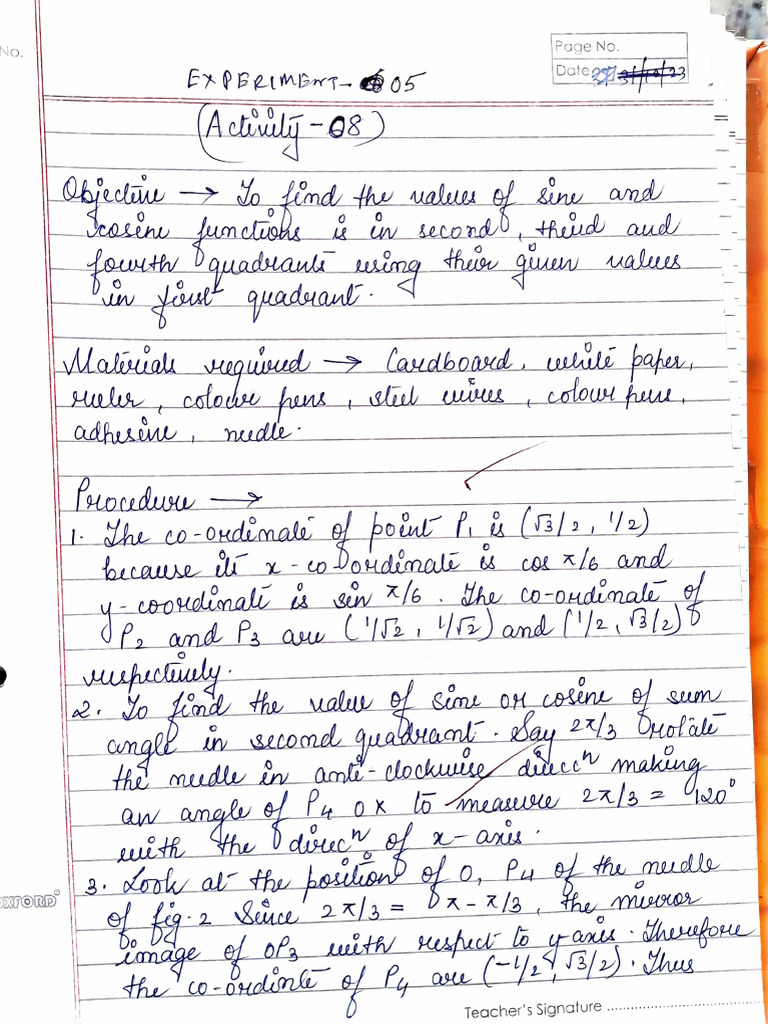 No.
Page No.
Date
EXPERIMENT - 05
(Activity - 08)
Objective → To find the values of sine and
cosine functions is in second, third and
fourth quadrants using their given values
in first quadrant.
Materials required → Cardboard, white paper,
ruler, colour pens, steel wires, colour pens,
adhesive, needle.
Procedure →
1. The co-ordinate of point P₁ is (√3/2, 1/2)
because its x-co-ordinate is cos π/6 and
y-coordinate is sin π/6. The co-ordinate of
P₂ and P₃ are (1/√2, 1/√2) and (1/2, √3/2)
respectively.
2. To find the value of sine or cosine of sum
angle in second quadrant. Say 2π/3 rotate
the needle in anti-clockwise direcⁿ making
an angle of P₄ O X to measure 2π/3 = 120°
with the direcⁿ of x-axis.
3. Look at the position of O, P₄ of the needle
of fig. 2 Since 2π/3 = π - π/3, the mirror
image of OP₃ with respect to y axis. Therefore
the co-ordinte of P₄ are (-1/2, √3/2). Thus
OXFORD
Teacher's Signature